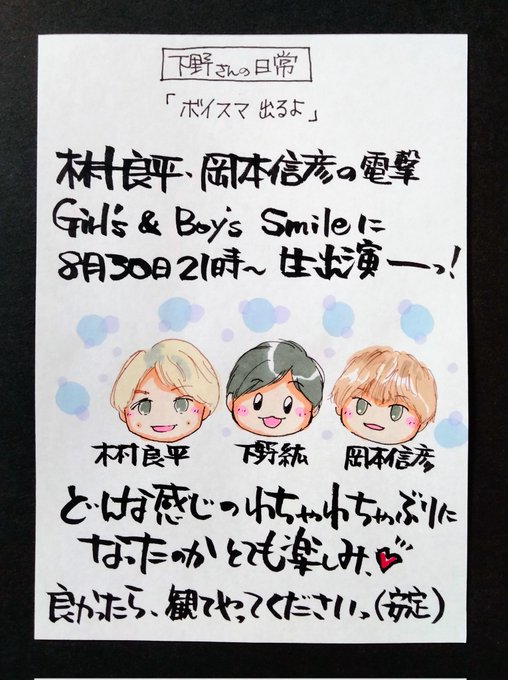 下野さんの日常
「ボイスマ 出るよ」
木村良平、岡本信彦の電撃
Girl's & Boy's Smileに
8月30日21時〜 生出演ーっ!
木村良平
下野紘
岡本信彦
どんな感じのわちゃわちゃぶりに
なったのかとても楽しみ、
良かったら、観てやってくださいっ(安定)